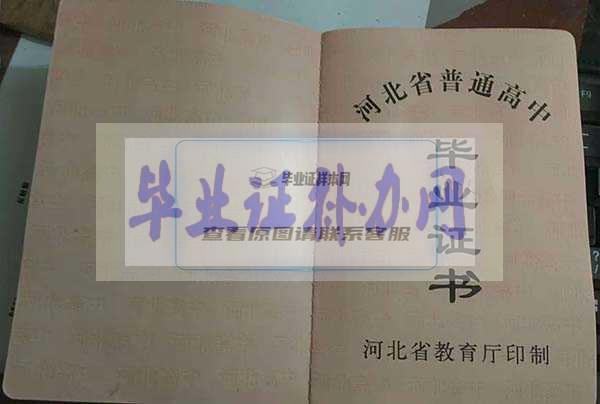 河北省普通高中
毕业证书
河北省教育厅印制
毕业证样本网
毕业证补办网
查看原图请联系客服